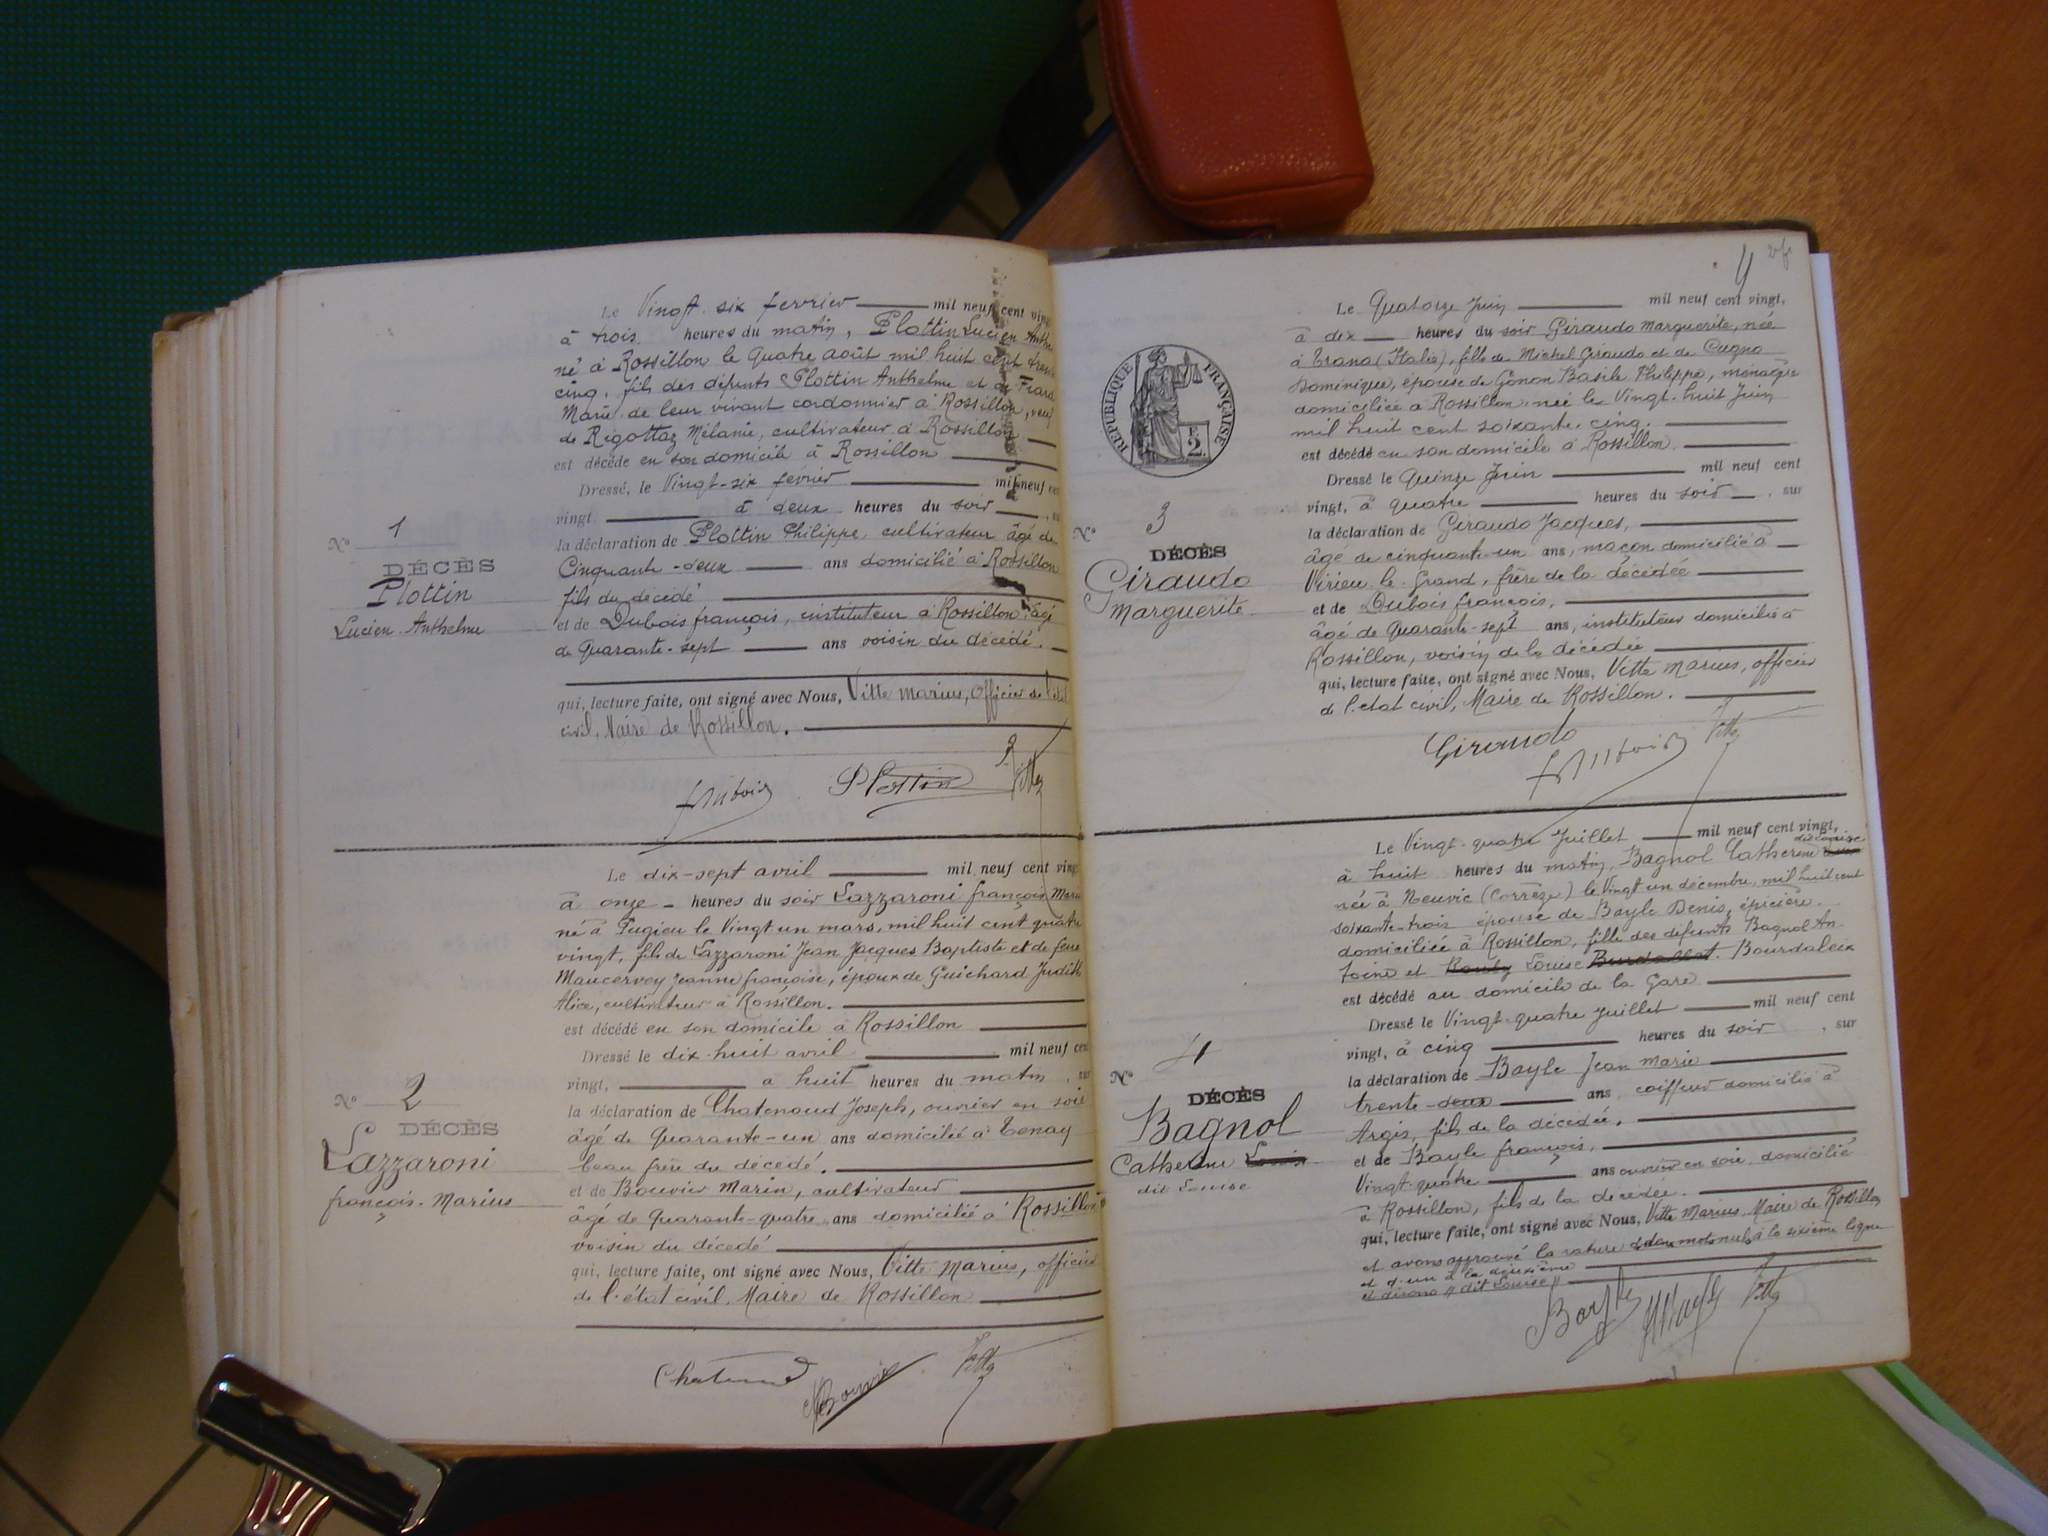 Le Vingt-six février mil neuf cent vingt
à trois heures du matin, Plottin Lucien Anthe
né à Rossillon le Quatre août mil huit cent trente
cinq, fils des défunts Plottin Anthelme et de
Marie de leur vivant cordonnier à Rossillon, veuf
de Rigottaz Mélanie, cultivateur à Rossillon
est décédé en son domicile à Rossillon
Dressé, le Vingt-six février mil neuf cent
vingt à deux heures du soir, sur
la déclaration de Plottin Philippe, cultivateur âgé de
Cinquante-deux ans domicilié à Rossillon
fils du décédé
et de Dubois françois, instituteur à Rossillon, âgé
de Quarante-sept ans voisin du décédé.
qui, lecture faite, ont signé avec Nous, Vitte Marius, Officier de l'état
civil, Maire de Rossillon.
N° 1
DÉCÈS
Plottin
Lucien-Anthelme
Dubois Plottin Vitte
Le dix-sept avril mil neuf cent vingt
à onze heures du soir Lazzaroni françois Marius
né à Pugieu le Vingt un mars, mil huit cent quatre
vingt, fils de Lazzaroni Jean Jacques Baptiste et de feue
Maucervey Jeanne françoise, époux de Guichard Judith
Alice, cultivateur à Rossillon.
est décédé en son domicile à Rossillon
Dressé le dix-huit avril mil neuf cent
vingt, à huit heures du matin, sur
la déclaration de Chatenoud Joseph, ouvrier en soie
âgé de Quarante-un ans domicilié à Tenay
beau frère du décédé.
et de Bouvier Marin, cultivateur
âgé de Quarante-quatre ans domicilié à Rossillon
voisin du décédé
qui, lecture faite, ont signé avec Nous, Vitte Marius, officier
de l'état civil, Maire de Rossillon
N° 2
DÉCÈS
Lazzaroni
françois-Marius
Bouvier Vitte
4
Le Quatorze Juin mil neuf cent vingt,
à dix heures du soir Giraudo Marguerite, née
à Trana (Italie), fille de Michel Giraudo et de Cugno
Dominique, épouse de Gonon Basile Philippe, ménagère
domiciliée à Rossillon, née le Vingt-huit Juin
mil huit cent soixante-cinq.
est décédé en son domicile à Rossillon.
Dressé le Quinze Juin mil neuf cent
vingt, à quatre heures du soir, sur
la déclaration de Giraudo Jacques,
âgé de cinquante-un ans, maçon domicilié à
Virieu le-Grand, frère de la décédée
et de Dubois françois,
âgé de Quarante-sept ans, instituteur domicilié à
Rossillon, voisin de la décédée
qui, lecture faite, ont signé avec Nous, Vitte Marius, officier
de l'état civil, Maire de Rossillon.
RÉPUBLIQUE FRANÇAISE
F.
2
N° 3
DÉCÈS
Giraudo
Marguerite
Giraudo Dubois Vitte
Le Vingt-quatre Juillet mil neuf cent vingt,
dit Louise
à huit heures du matin, Bagnol Catherine
née à Neuvic (Corrèze) le Vingt un décembre, mil huit cent
soixante-trois épouse de Bayle Denis, épicière.
domiciliée à Rossillon, fille des défunts Bagnol An-
toine et Louise Bourdaleix
est décédé au domicile de la Gare
Dressé le Vingt-quatre Juillet mil neuf cent
vingt, à cinq heures du soir, sur
la déclaration de Bayle Jean Marie
trente-deux ans coiffeur domicilié à
Argis, fils de la décédée.
et de Bayle françois,
Vingt-quatre ans ouvrier en soie, domicilié
à Rossillon, fils de la décédée.
qui, lecture faite, ont signé avec Nous, Vitte Marius, Maire de Rossillon
et avons approuvé la rature de deux mots nuls à la sixième ligne
et d'un à la deuxième
et disons "dit Louise"
N° 4
DÉCÈS
Bagnol
Catherine
dit Louise
Bayle Vitte